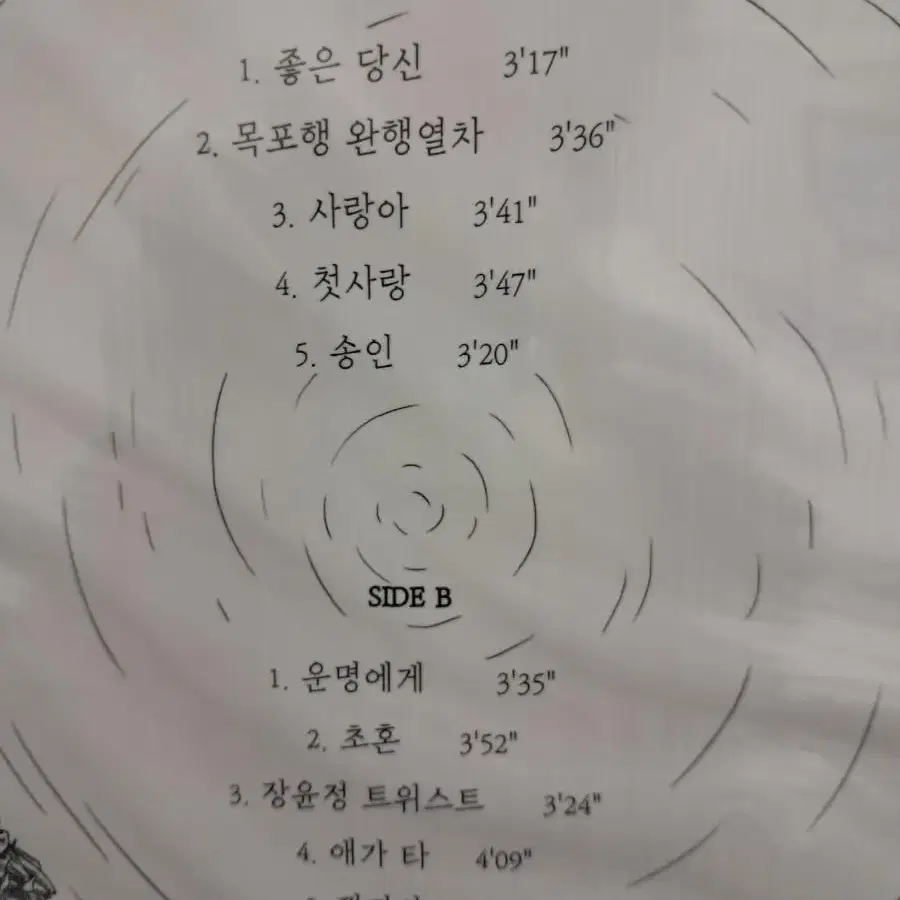 1. 좋은 당신 3'17"
2. 목포행 완행열차 3'36"
3. 사랑아 3'41"
4. 첫사랑 3'47"
5. 송인 3'20"
SIDE B
1. 운명에게 3'35"
2. 초혼 3'52"
3. 장윤정 트위스트 3'24"
4. 애가 타 4'09"